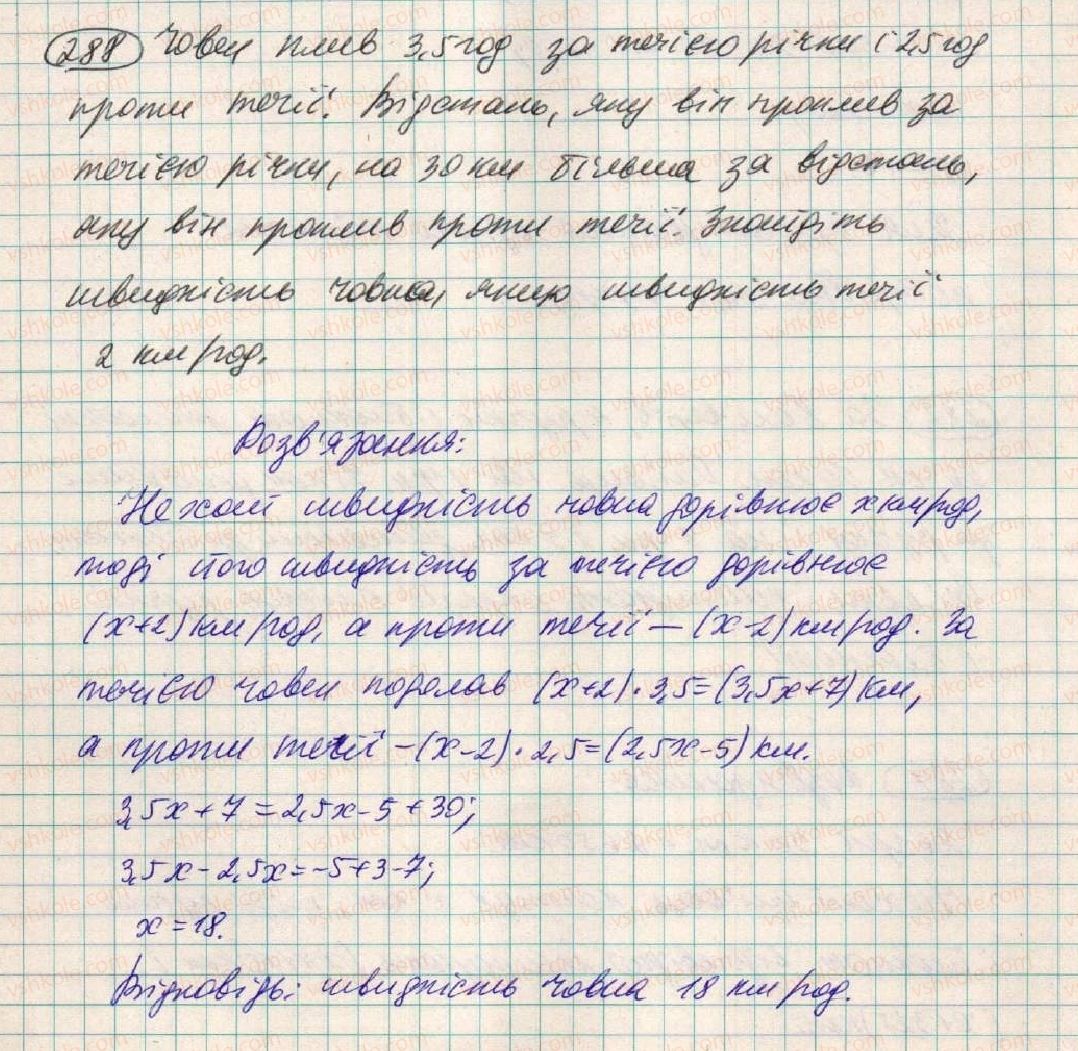 288 Човен плив 3,5 год за течією річки і 2,5 год
проти течії. Відстань, яку він проплив за
течією річки, на 30 км більша за відстань,
яку він проплив проти течії. Знайдіть
швидкість човна, якщо швидкість течії
2 км/год.
Розв'язання:
Нехай швидкість човна дорівнює х км/год,
тоді його швидкість за течією дорівнює
(х+2) км/год, а проти течії – (х-2) км/год. За
течією човен подолав (х+2)·3,5=(3,5х+7) км,
а проти течії –(х-2)·2,5=(2,5х-5) км.
3,5х+7=2,5х-5+30;
3,5х-2,5х=-5+3-7;
х=18.
Відповідь: швидкість човна 18 км/год.